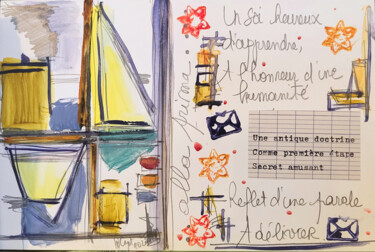 Un soi heureux
d'apprendre,
A l'honneur d'une
humanité
alla prima.
Une antique doctrine
Comme première étape
Secret amusant
Reflet d'une parole
A délivrer